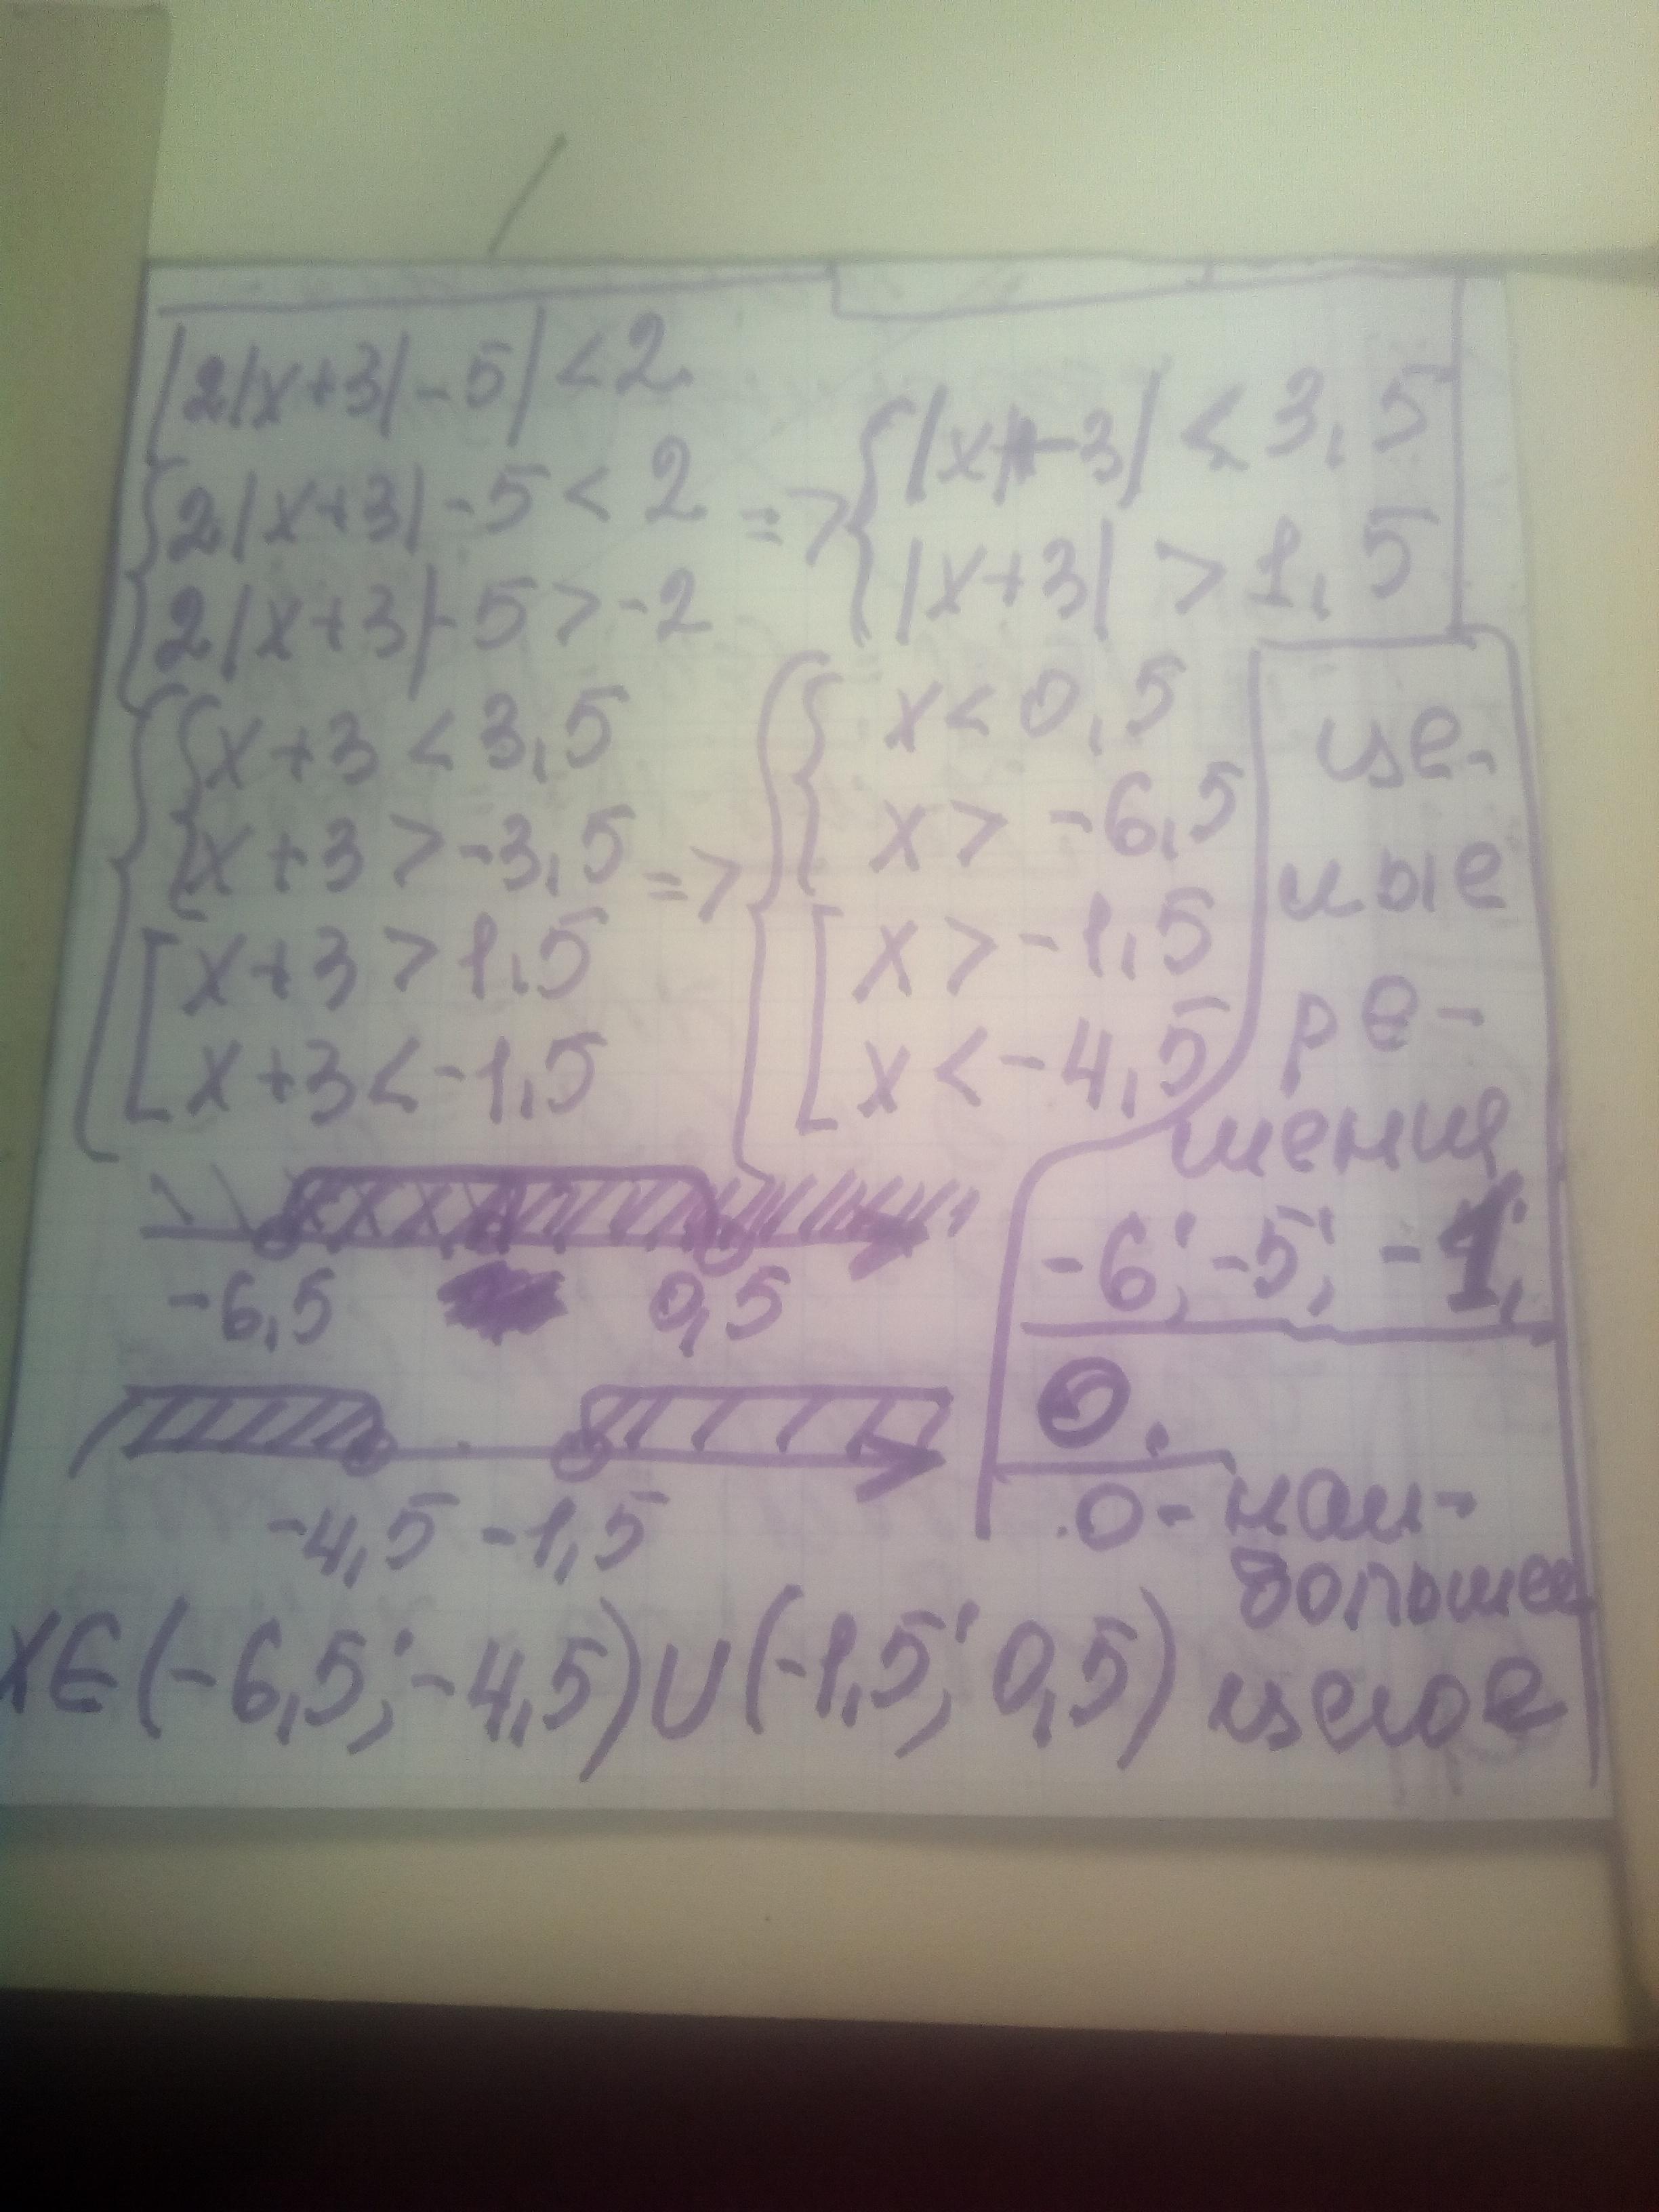 |2|x+3|-5|<2
{2|x+3|-5<2
2|x+3|-5>-2
=> {|x+3|<3,5
|x+3|>1,5
{{x+3<3,5
x+3>-3,5
[x+3>1,5
x+3<-1,5
=> {{x<0,5
x>-6,5
[x>-1,5
x<-4,5
-6,5 0,5
-4,5 -1,5
x∈(-6,5;-4,5)∪(-1,5;0,5)
це-
лые
ре-
шения
-6; -5; -1;
0.
0- наи-
большее
целое